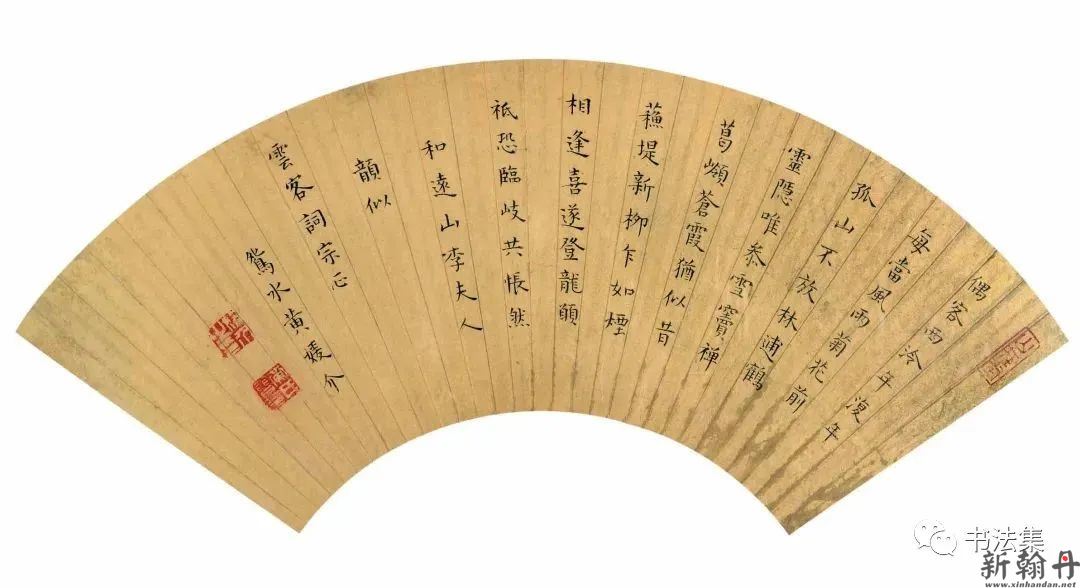 偶客西泠年復年
每當風雨菊花前
孤山不放林逋鶴
靈隱唯叅雪竇禪
葛嶺蒼霞猶似昔
蘓堤新柳乍如煙
相逢喜遂登龍願
祇恐臨岐共悵然
和遠山李夫人
韻似
雲客詞宗正
鴛水黃媛介
书法集
新翰丹
www.xinhandan.net